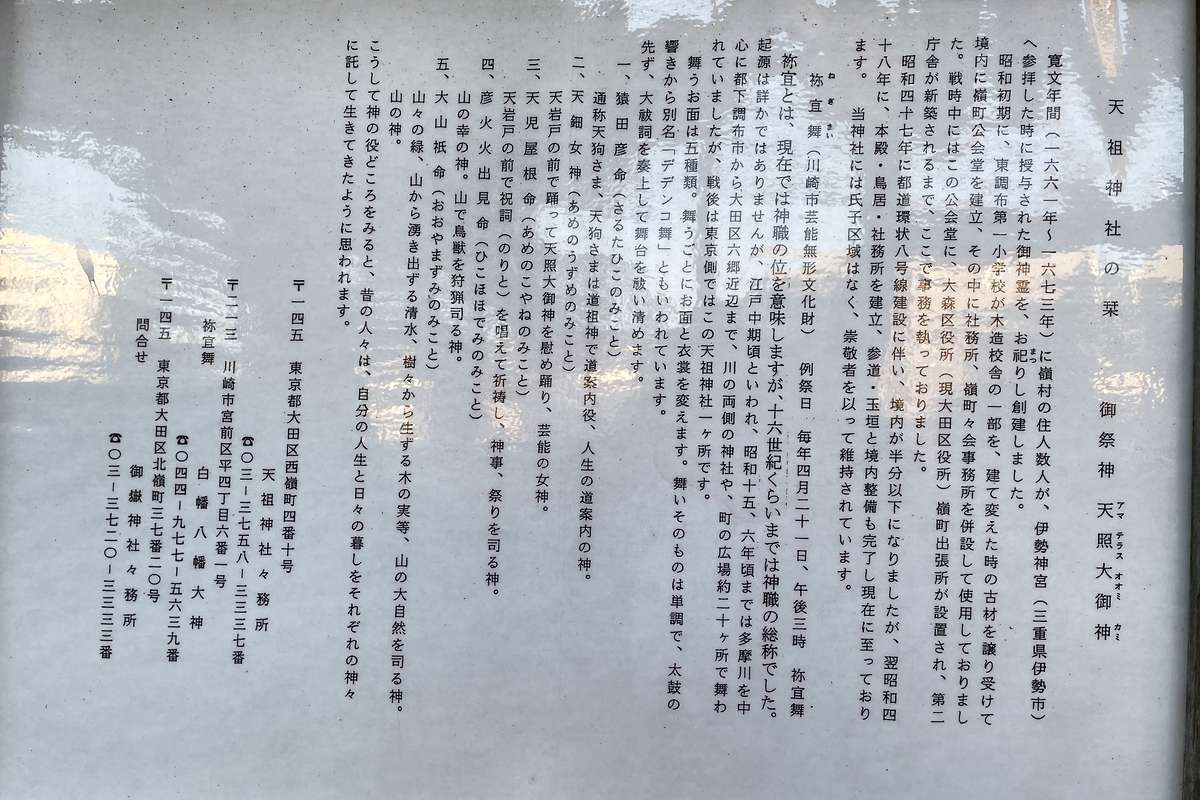 天祖神社の栞　御祭神 天照大御神
アマ テラス オオミ カミ
寛文年間（一六六一年～一六七三年）に嶺村の住人数人が、伊勢神宮（三重県伊勢市）
へ参拝した時に授与された御神霊を、お祀りし創建しました。
まつ
昭和初期に、東調布第一小学校が木造校舎の一部を、建て変えた時の古材を譲り受けて
境内に嶺町公会堂を建立、その中に社務所、嶺町々会事務所を併設して使用しておりまし
た。戦時中にはこの公会堂に、大森区役所（現大田区役所）嶺町出張所が設置され、第二
庁舎が新築されるまで、ここで事務を執っておりました。
昭和四十七年に都道環状八号線建設に伴い、境内が半分以下になりましたが、翌昭和四
十八年に、本殿・鳥居・社務所を建立、参道・玉垣と境内整備も完了し現在に至っており
ます。　当神社には氏子区域はなく、崇敬者を以って維持されています。
祢宜舞（川崎市芸能無形文化財）　例祭日　毎年四月二十一日、午後三時　祢宜舞
ね ぎ まい
祢宜とは、現在では神職の位を意味しますが、十六世紀くらいまでは神職の総称でした。
起源は詳かではありませんが、江戸中期頃といわれ、昭和十五、六年頃までは多摩川を中
心に都下調布市から大田区六郷近辺まで、川の両側の神社や、町の広場約二十ヶ所で舞わ
れていましたが、戦後は東京側ではこの天祖神社一ヶ所です。
舞うお面は五種類。舞うごとにお面と衣裳を変えます。舞いそのものは単調で、太鼓の
響きから別名「デデンコ舞」ともいわれています。
先ず、大祓詞を奏上して舞台を祓い清めます。
一、猿田彦命（さるたひこのみこと）
通称天狗さま、天狗さまは道祖神で道案内役、人生の道案内の神。
二、天細女神（あめのうずめのみこと）
天岩戸の前で踊って天照大御神を慰め踊り、芸能の女神。
三、天児屋根命（あめのこやねのみこと）
天岩戸の前で祝詞（のりと）を唱えて祈祷し、神事、祭りを司る神。
四、彦火火出見命（ひこほほでみのみこと）
山の幸の神。山で鳥獣を狩猟司る神。
五、大山祇命（おおやまずみのみこと）
山々の緑、山から湧き出ずる清水、樹々から生ずる木の実等、山の大自然を司る神。
山の神。
こうして神の役どころをみると、昔の人々は、自分の人生と日々の暮しをそれぞれの神々
に託して生きてきたように思われます。
〒一四五　東京都大田区西嶺町四番十号
天祖神社々務所
☎〇三－三七五八－三三三七番
〒二一三　川崎市宮前区平四丁目六番一号
祢宜舞　白幡八幡大神
☎〇四四－九七七－五六三九番
〒一四五　東京都大田区北嶺町三七番二〇号
問合せ　御嶽神社々務所
☎〇三－三七二〇－三三三三番